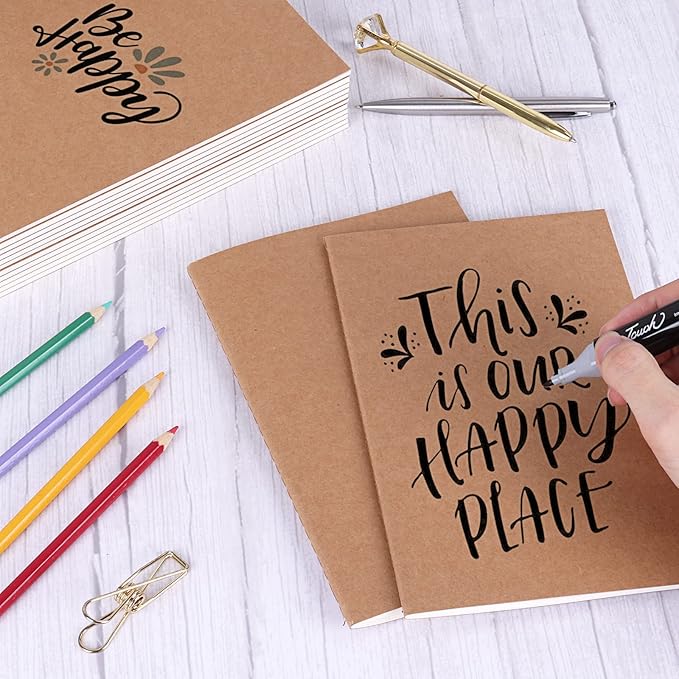 Be
Happy
This
is OUR
HAPPY
PLACE
Touch